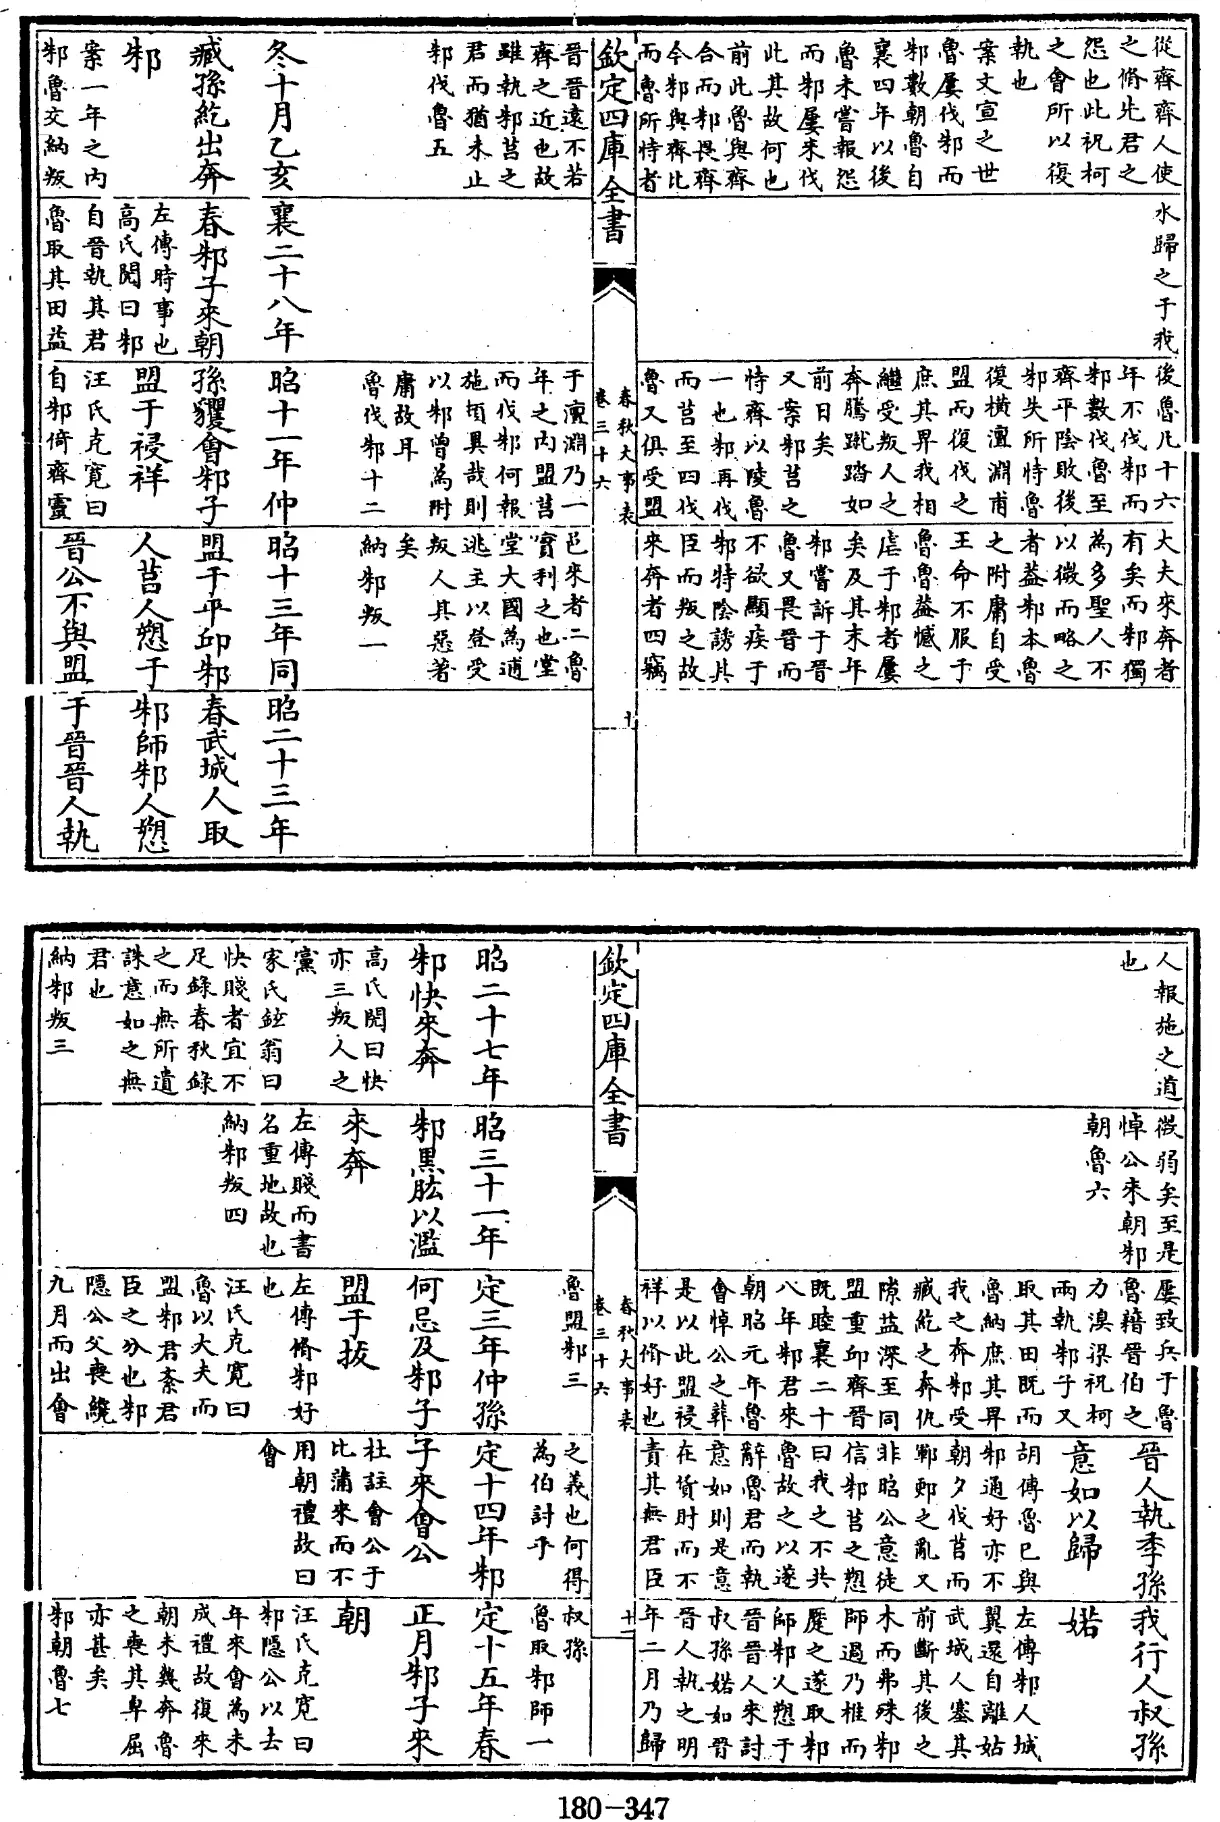 從齊齊人使
之脩先君之
怨也此祝柯
之會所以復
執也
案文宣之世
魯屢伐邾而
邾數朝魯自
襄四年以後
魯未嘗報怨
而邾屢來伐
此其故何也
前此魯與齊
合而邾畏齊
今邾與齊比
而魯所恃者
水歸之于我
後魯凡十六
年不伐邾而
邾數伐魯至
齊平陰敗後
邾失所恃魯
復横澶淵甫
盟而復伐之
庶其畀我相
繼受叛人之
奔騰蹴踏如
前日矣
又案邾莒之
恃齊以陵魯
一也邾再伐
而莒至四伐
魯又俱受盟
大夫來奔者
有矣而邾獨
為多聖人不
以微而略之
者益邾本魯
之附庸自受
王命不服于
魯魯益憾之
虐于邾者屢
矣及其末年
邾嘗訴于晉
魯又畏晉而
不欲顯疾于
邾特陰誘其
臣而叛之故
來奔者四竊
欽定四庫全書
春秋大事表
卷三十六
十
晉晉遠不若
齊之近也故
雖執邾莒之
君而猶未止
邾伐魯五
冬十月乙亥
臧孫紇出奔
邾
案一年之内
邾魯交納叛
襄二十八年
春邾子來朝
左傳時事也
高氏閌曰邾
自晉執其君
魯取其田益
于澶淵乃一
年之内盟莒
而伐邾何報
施頓異哉則
以邾曾為附
庸故耳
魯伐邾十二
昭十一年仲
孫貜會邾子
盟于祲祥
汪氏克寛曰
自邾倚齊靈
邑來者二魯
實利之也堂
堂大國為逋
逃主以登受
叛人其惡著
矣
納邾叛一
昭十三年同
盟于平邱邾
人莒人愬于
晉公不與盟
昭二十三年
春武城人取
邾師邾人愬
于晉晉人執
人報施之道
也
微弱矣至是
悼公來朝邾
朝魯六
屢致兵于魯
魯藉晉伯之
力溴梁祝柯
兩執邾子又
取其田既而
魯納庶其畀
我之奔邾受
臧紇之奔仇
隙益深至同
盟重邱齊晉
既睦襄二十
八年邾君來
朝昭元年魯
會悼公之葬
是以此盟祲
祥以脩好也
晉人執季孫
意如以歸
胡傳魯已與
邾通好亦不
朝夕伐莒而
鄆郠之亂又
非昭公意徒
信邾莒之愬
曰我之不共
魯故之以遂
辭魯君而執
意如則是意
在貨財而不
責其無君臣
我行人叔孫
婼
左傳邾人城
翼還自離姑
武城人塞其
前斷其後之
木而弗殊邾
師過乃推而
蹷之遂取邾
師邾人愬于
晉晉人來討
叔孫婼如晉
晉人執之明
年二月乃歸
欽定四庫全書
春秋大事表
卷三十六
十一
魯盟邾三
之義也何得
為伯討乎
叔孫
魯取邾師一
昭二十七年
邾快來奔
高氏閌曰快
亦三叛人之
黨
家氏鉉翁曰
快賤者宜不
足錄春秋錄
之而無所遺
誅意如之無
君也
納邾叛三
昭三十一年
邾黑肱以濫
來奔
左傳賤而書
名重地故也
納邾叛四
定三年仲孫
何忌及邾子
盟于拔
左傳脩邾好
也
汪氏克寛曰
魯以大夫而
盟邾君紊君
臣之分也邾
隱公父喪纔
九月而出會
定十四年邾
子來會公
杜註會公于
比蒲來而不
用朝禮故曰
會
定十五年春
正月邾子來
朝
汪氏克寛曰
邾隱公以去
年來會為未
成禮故復來
朝未幾奔魯
之喪其卑屈
亦甚矣
邾朝魯七
180-347